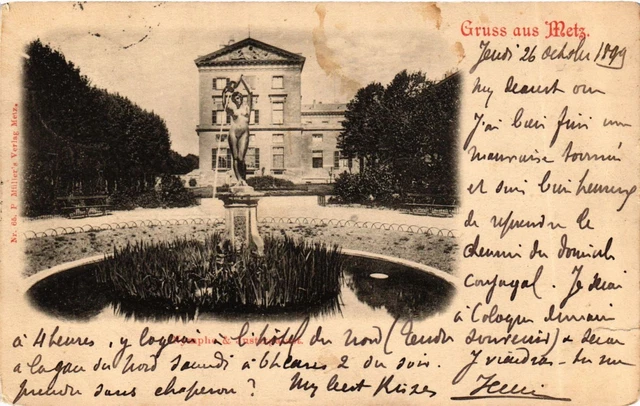 Gruss aus Metz.
Jeudi 26 octobre 1899
My dearest own
J'ai bien fini ma
mauvaise tournée
et suis bien heureux
de reprendre le
chemin du domicile
conjugal. Je serai
à Cologne demain
à 4 heures, y logerai à l'hôtel du Nord (tendre souvenir) & serai
à la gare du Nord samedi à 6 heures 2 du soir. Y viendras-tu me
prendre sans chaperon? My best Kisses
Nymphe & Justizpalast.
Nr. 65. P. Müller's Verlag Metz.